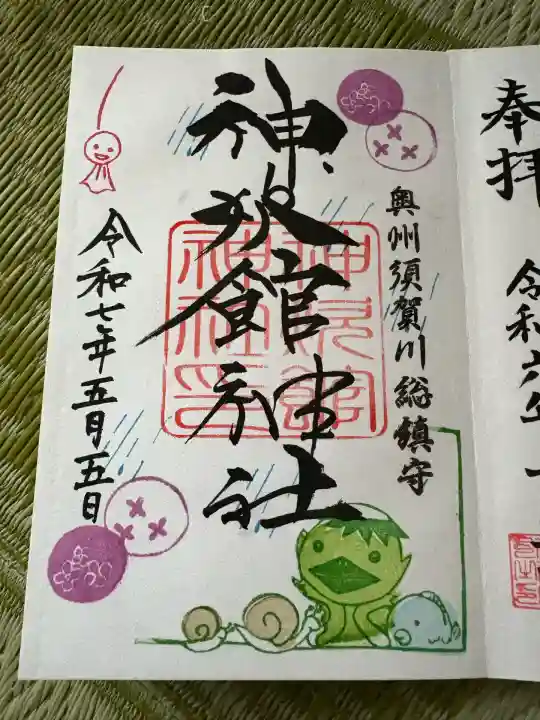 奉拝
令和六年一
奥州須賀川総鎮守
神炊館神社
神炊館神社印
令和七年五月五日